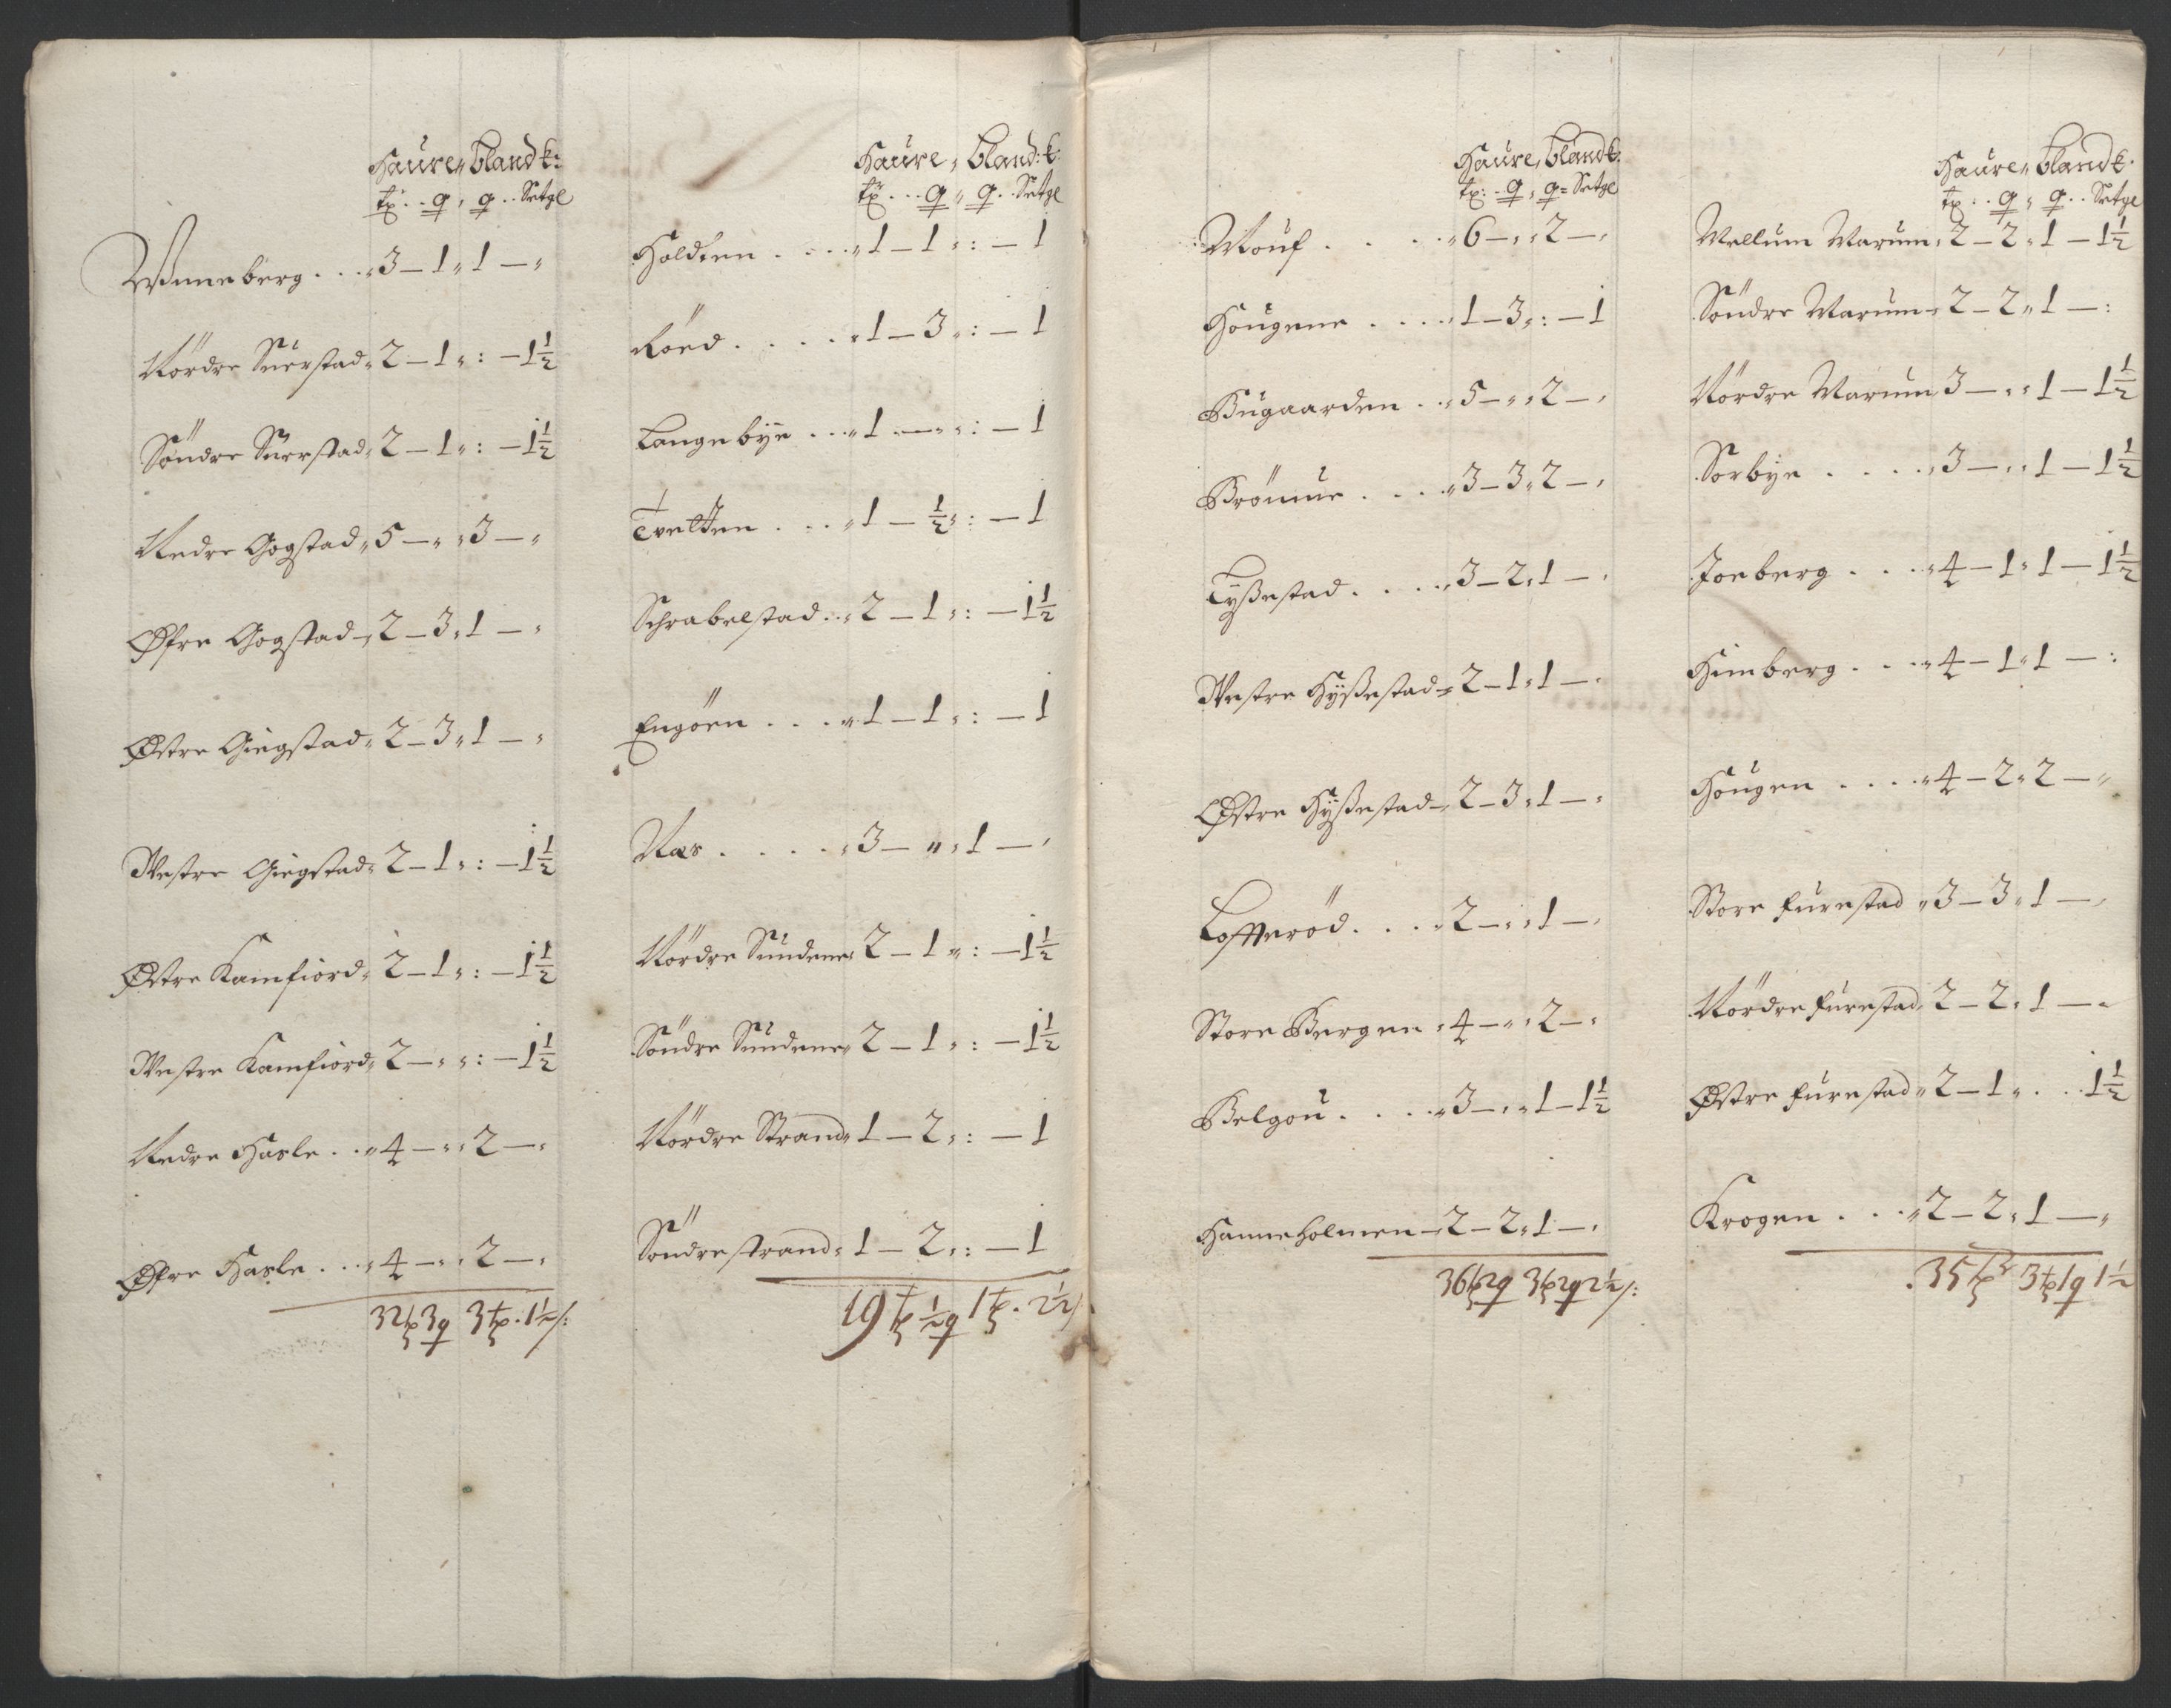 Haure „ blandk:
tx: . . q „ q . . Setgl
Winneberg . . . „ 3 – 1 „ 1 – „
Nördre Suerstad „ 2 – 1 „ : – 1½
Söndre Suerstad „ 2 – 1 „ : – 1½
Nedre Gogstad „ 5 – „ „ 3 – „
Øfre Gogstad – „ 2 – 3 „ 1 – „
Østre Giegstad „ 2 – 3 „ 1 – „
Westre Giegstad „ 2 – 1 „ : – 1½
Østre Kamfiord „ 2 – 1 „ : – 1½
Westre Kamfiord „ 2 – „ „ : – 1½
Nedre Hasle . . „ 4 – „ „ 2 – „
Øfre Hasle . . . „ 4 – „ „ 2 – „
32 tx 3 q 3 tx . 1½ /:
Haure „ bland: k:
tx . . . q „ q . . Setgl
Holdten . . . . „ 1 – 1 „ : – 1
Röed . . . . . „ 1 – 3 „ : – 1
Langebÿe . . . „ 1 – „ „ : – 1
Tvetten . . . „ 1 – ½ „ : – 1
Schrabelstad . . „ 2 – 1 „ : – 1½
Engöen . . . „ 1 – 1 „ : – 1
Næs . . . . . „ 3 – „ „ 1 – „
Nördre Sundene „ 2 – 1 „ : – 1½
Söndre Sundene „ 2 – 1 „ : – 1½
Nördre Strand „ 1 – 2 „ : – 1
Söndre strand „ 1 – 2 „ : – 1
19 tx ½ q 1 tx . 2½ /
Haure „ blandk:
tx: . q „ q = Setgl
Mouf . . . . . „ 6 – „ „ 2 – „
Hougene . . . . „ 1 – 3 „ : – 1
Bugaarden . . „ 5 – „ „ 2 – „
Brömue . . . . „ 3 – 3 „ 2 – „
Tÿßestad . . . . „ 3 – 2 „ 1 – „
Westre Hÿßestad „ 2 – 1 „ 1 – „
Østre Hÿßestad – „ 2 – 3 „ 1 – „
Lofferöd . . . . „ 2 – „ „ 1 – „
Store Bergen „ 4 – „ „ 2 – „
Belgou . . . . „ 3 – „ „ 1 – 1½
Hanneholmen – 2 – 2 „ 1 – „
36 tx 2 q 3 tx 2 q 2½ /:
Haure „ blandk:
tx: . q „ q . . Setgl
Mellum Marum „ 2 – 2 „ 1 – 1½
Söndre Marum „ 2 – 2 „ 1 – :
Nördre Marum 3 – „ „ 1 – 1½
Sorbÿe . . . . . „ 3 – „ „ 1 – 1½
Joeberg . . . . „ 4 – 1 „ 1 – 1½
Himberg . . . . „ 4 – 1 „ 1 – :
Hougen . . . . „ 4 – 2 „ 2 – „
Store Furestad „ 3 – 3 „ 1 – „
Nördre Furestad „ 2 – 2 „ 1 – „
Østre Furestad „ 2 – 1 „ . . 1½
Krogen . . . . „ 2 – 2 „ 1 – „
35 tx 3 tx 1 q 1½